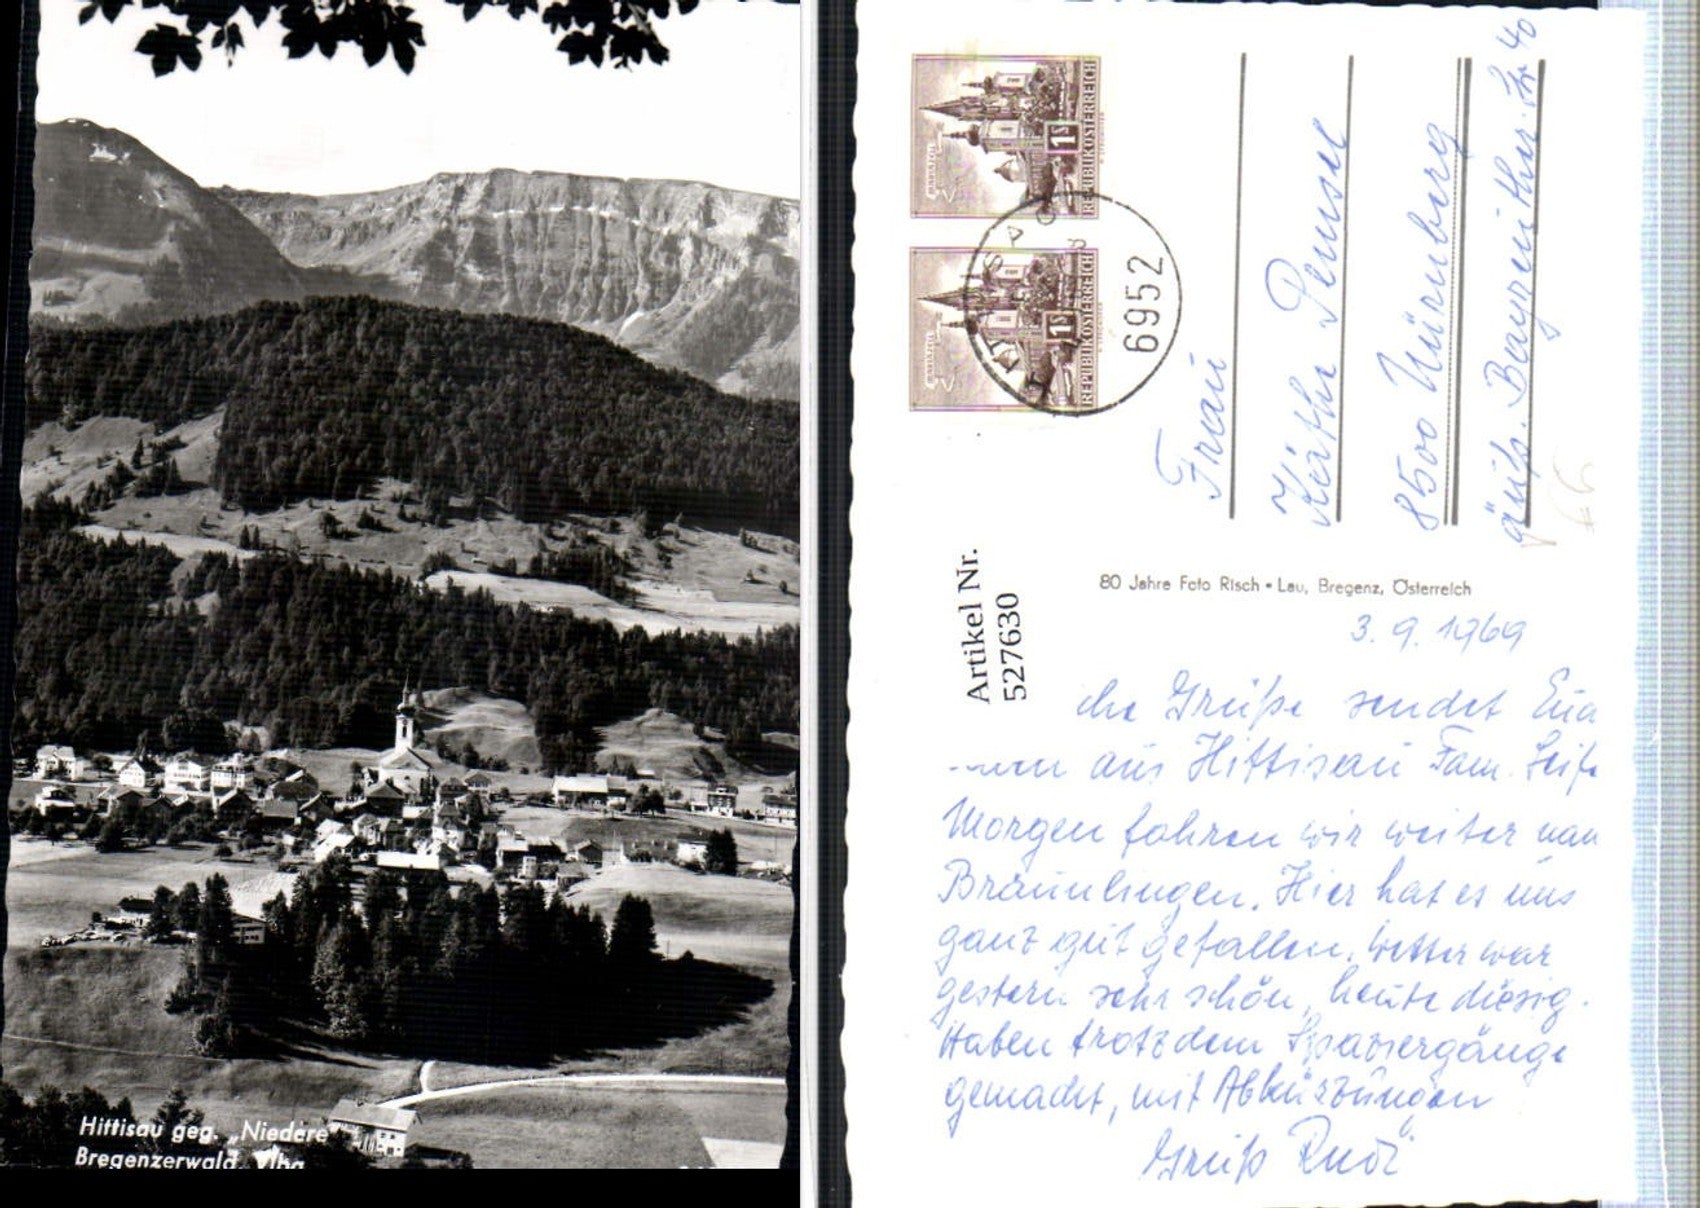 Hittisau geg. „Niedere"
Bregenzerwald, Vlbg.
MARIAZELL
1S
REPUBLIK ÖSTERREICH
MARIAZELL
1S
REPUBLIK ÖSTERREICH
6952
Frau
Käthe Pensel
8500 Nürnberg
äuß. Bayreuther Str 40
Artikel Nr.
527630
80 Jahre Foto Risch-Lau, Bregenz, Österreich
3. 9. 1969
Grüße sendet Eua
aus Hittisau Fam.
Morgen fahren wir weiter nan
Bräunlingen. Hier hat es uns
ganz gut gefallen. Wetter war
gestern sehr schön, heute diesig.
Haben trotzdem Spaziergänge
gemacht, mit Abkürzungen
Gruß Rudi